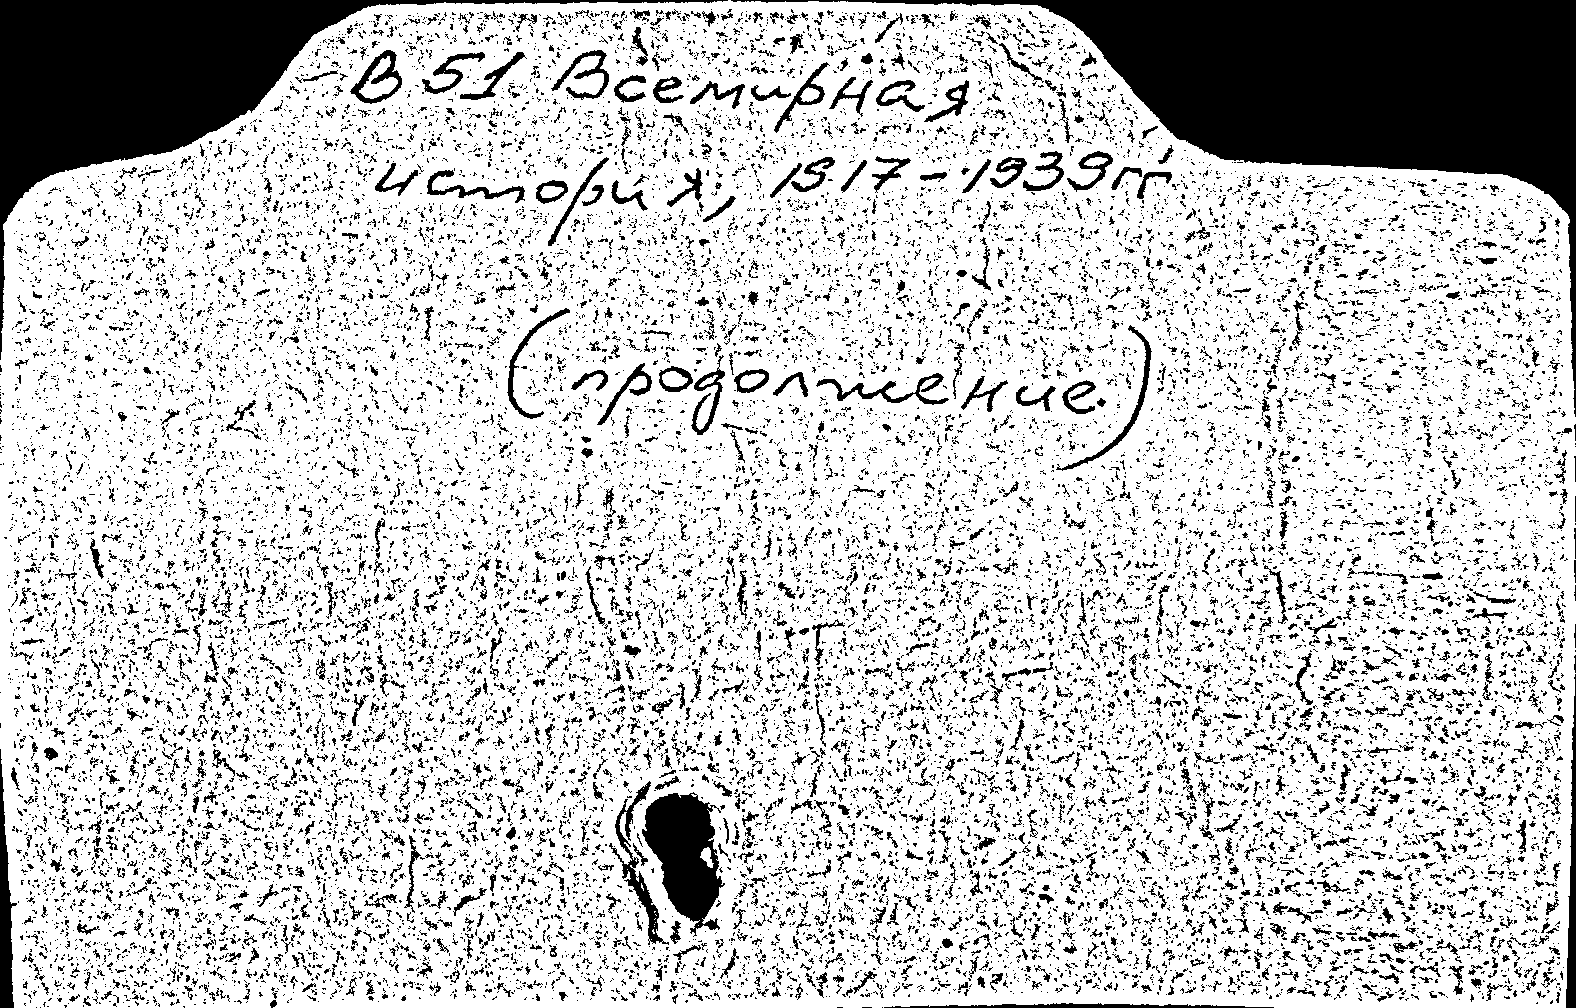 В 51 Всемирная
история, 1917-1939гг.
(продолжение.)